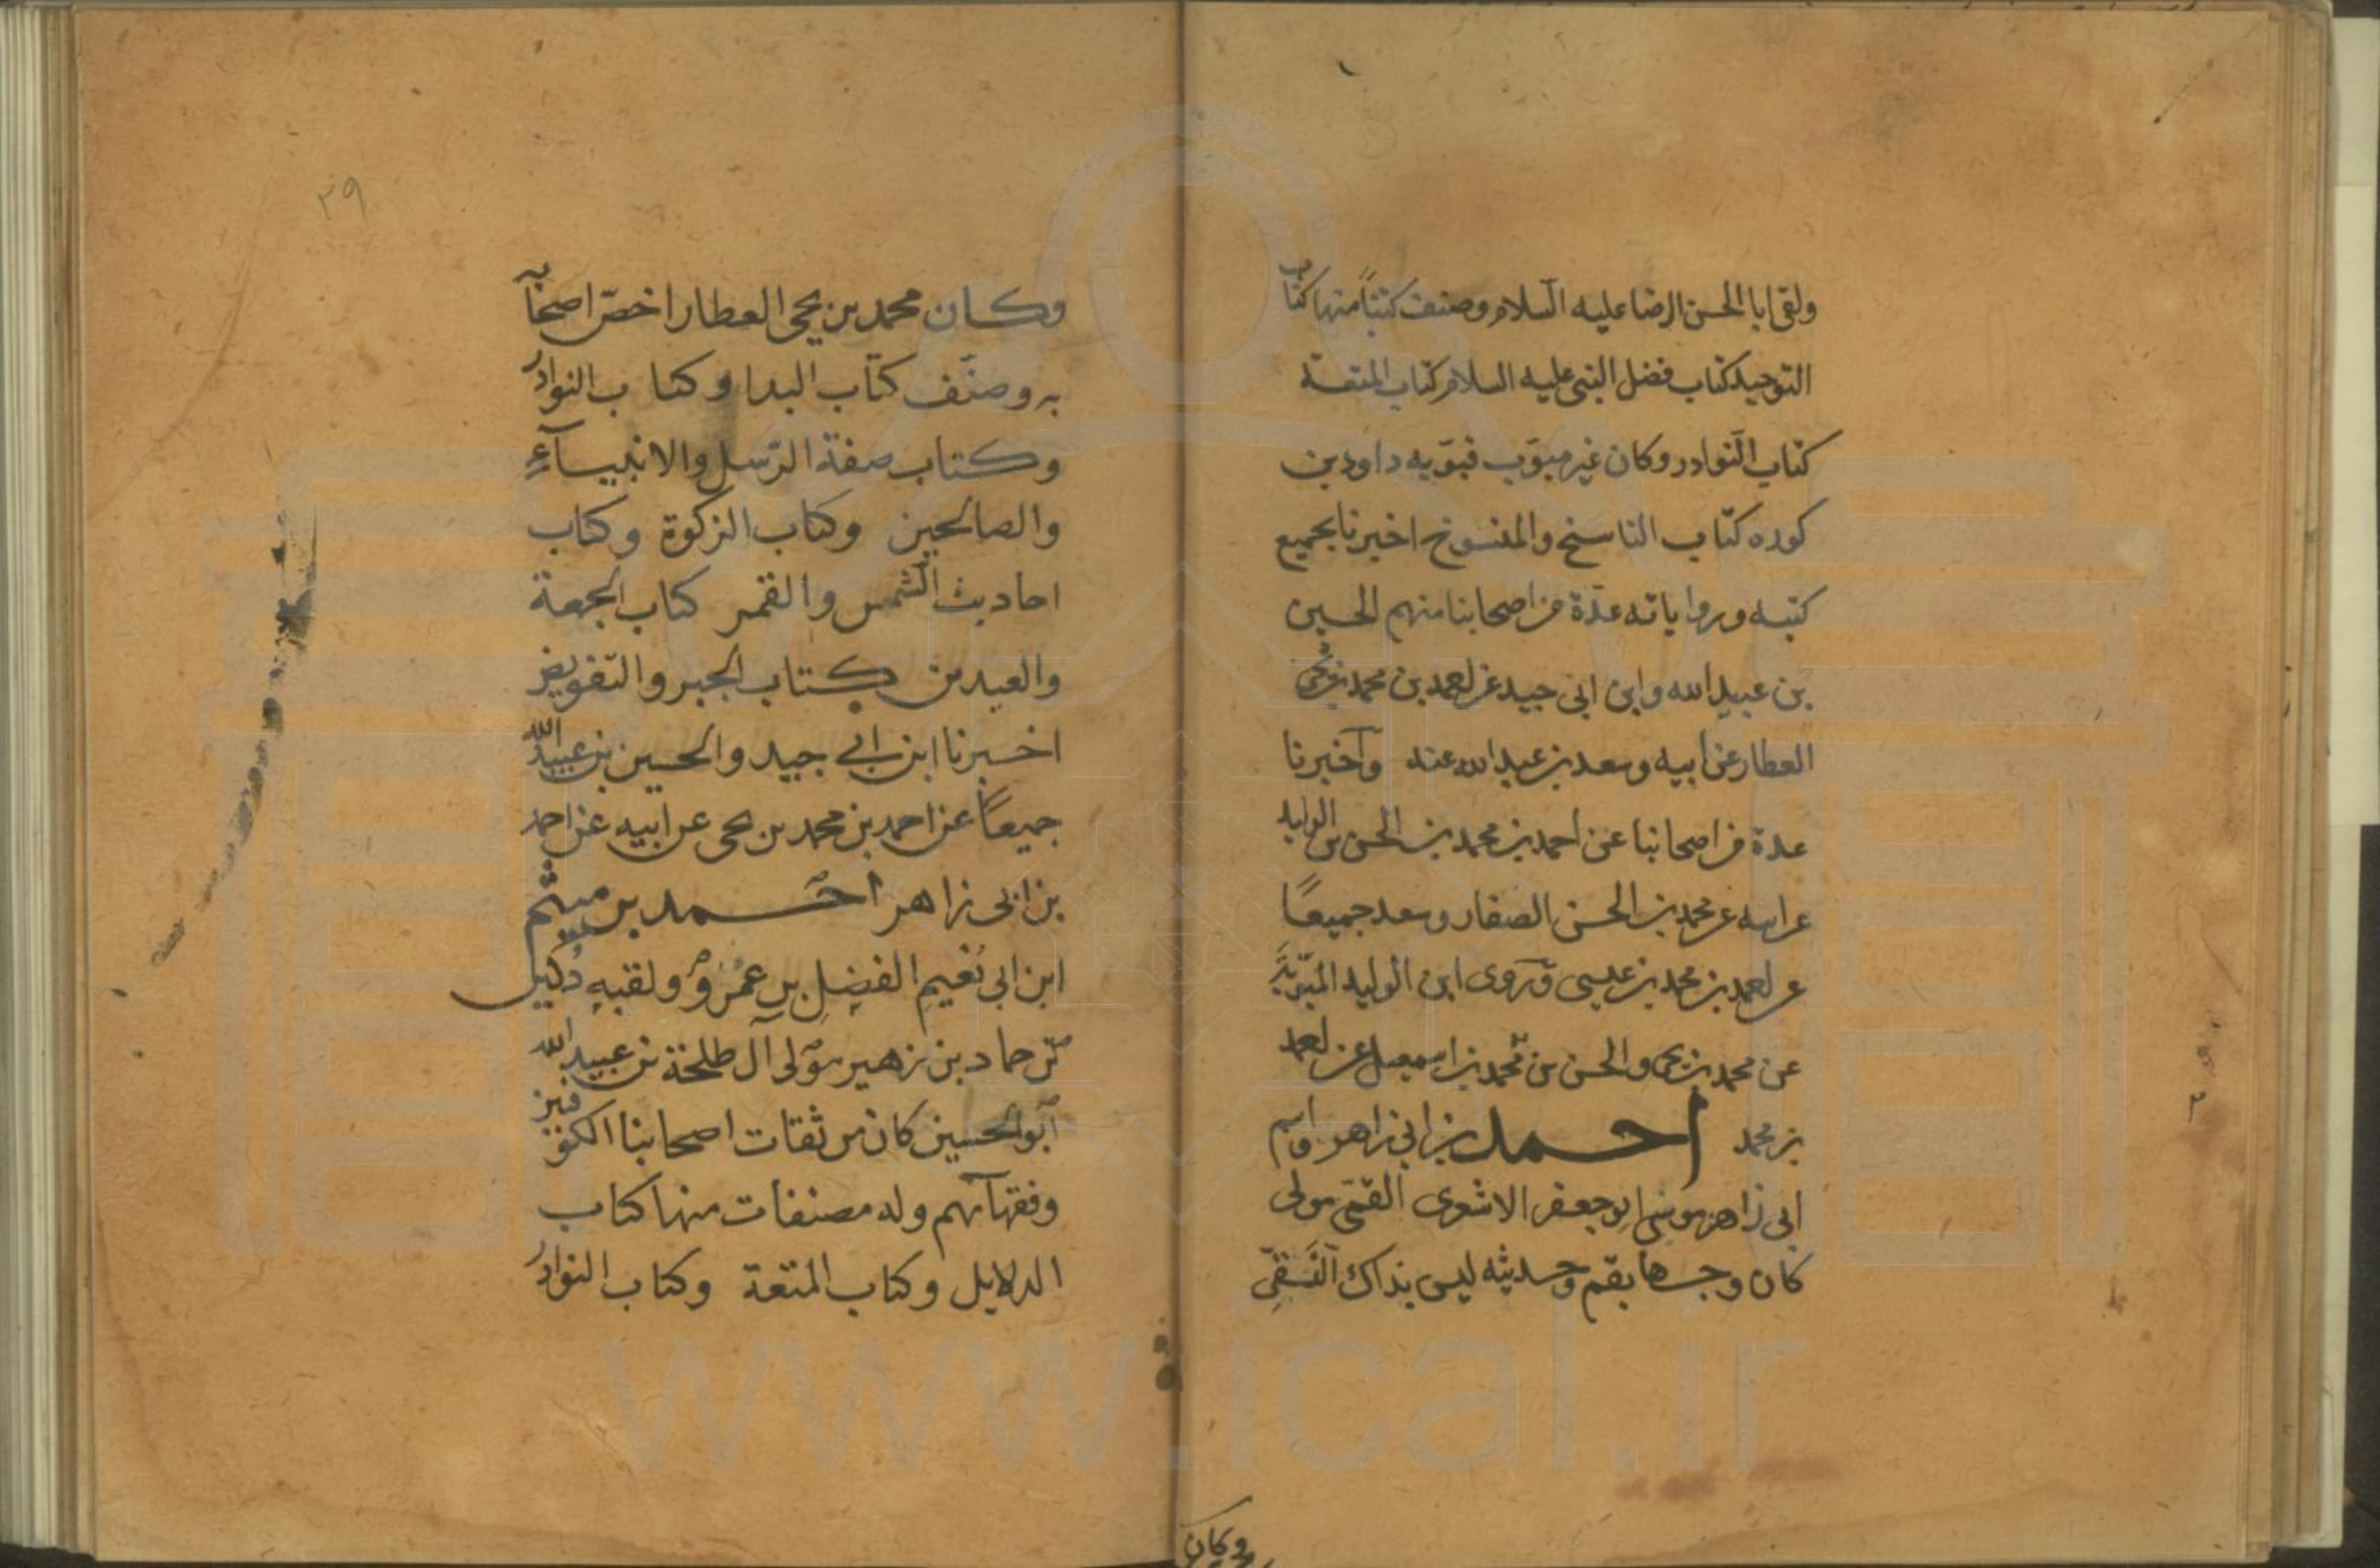 ولقى ابا الحسن الرضا عليه السلام وصنف كتباً منها كتاب
التوحيد كتاب فضل النبى عليه السلام كتاب المتعة
كتاب النوادر وكان غير مبوّب فبوّبه داود بن
كوره كتاب الناسخ والمنسوخ اخبرنا بجميع
كتبه ورواياته عدّة من اصحابنا منهم الحسين
بن عبيد الله وابن ابى جيد عن احمد بن محمد بن يحيى
العطار عن ابيه وسعد بن عبد الله عنه واخبرنا
عدة من اصحابنا عن احمد بن محمد بن الحسن بن الوليد
عن ابيه عن محمد بن الحسن الصفار وسعد جميعاً
عن احمد بن محمد بن عيسى وروى ابن الوليد المبوّبة
عن محمد بن يحيى والحسن بن محمد بن اسمعيل عن احمد
بن محمد احمد بن ابى زاهر واسم
ابى زاهر موسى ابو جعفر الاشعرى القمّى مولى
كان وجها بقم وحديثه ليس بذاك النّقىّ
وكان
٢٩
وكان محمد بن يحيى العطار اخصّ اصحابه
به وصنّف كتاب البدا وكتاب النوادر
وكتاب صفة الرّسل والانبيآءِ
والصالحين وكتاب الزكوة وكتاب
احاديث الشمس والقمر كتاب الجمعة
والعيدين كتاب الجبر والتفويض
اخبرنا ابن ابى جيد والحسين بن عبيد الله
جميعاً عن احمد بن محمد بن يحيى عن ابيه عن احمد
بن ابى زاهر احمد بن ميثم
ابن ابى نُعيم الفضل بن عمرو ولقبه دُكين
بن حماد بن زهير مولى آل طلحة بن عبيد الله
ابو الحسين كان من ثقات اصحابنا الكوفيين
وفقهآئهم وله مصنفات منها كتاب
الدلايل وكتاب المتعة وكتاب النوادر
www.ical.ir